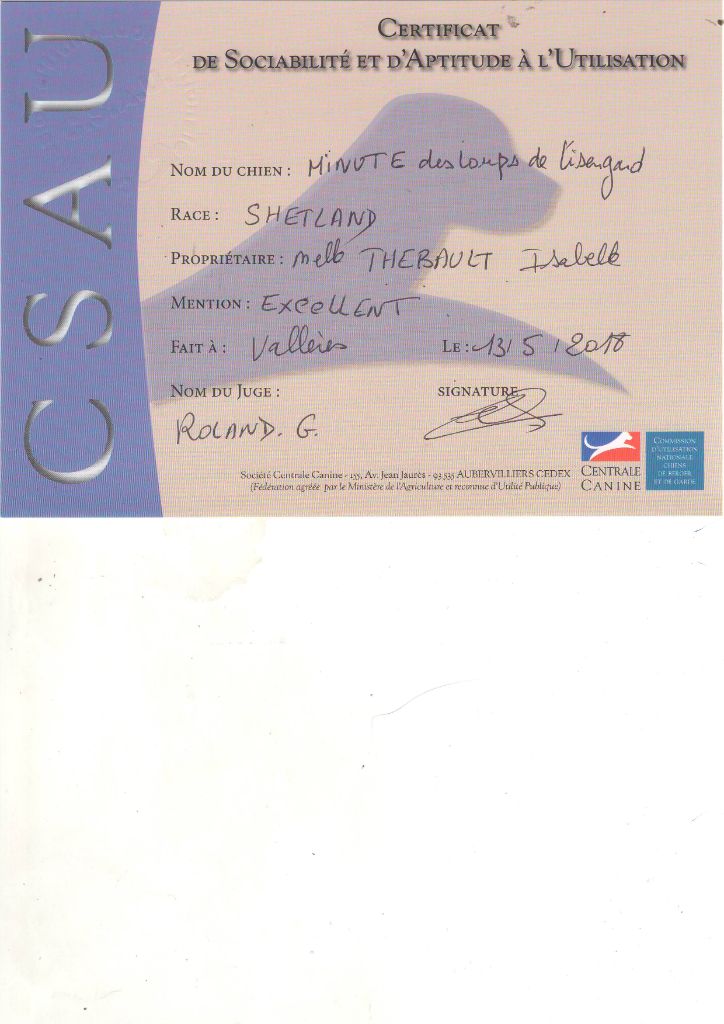 CSAU
CERTIFICAT
DE SOCIABILITÉ ET D'APTITUDE À L'UTILISATION
NOM DU CHIEN : MINUTE des loups de l'isengard
RACE : SHETLAND
PROPRIÉTAIRE : Melle THEBAULT Isabelle
MENTION : EXCELLENT
FAIT À : Vallères LE : 13/5/2018
NOM DU JUGE : SIGNATURE
ROLAND. G.
Société Centrale Canine - 155, Av. Jean Jaurès - 93 535 AUBERVILLIERS CEDEX
(Fédération agréée par le Ministère de l'Agriculture et reconnue d'Utilité Publique)
CENTRALE
CANINE
COMMISSION
D'UTILISATION
NATIONALE
CHIENS
DE BERGER
ET DE GARDE